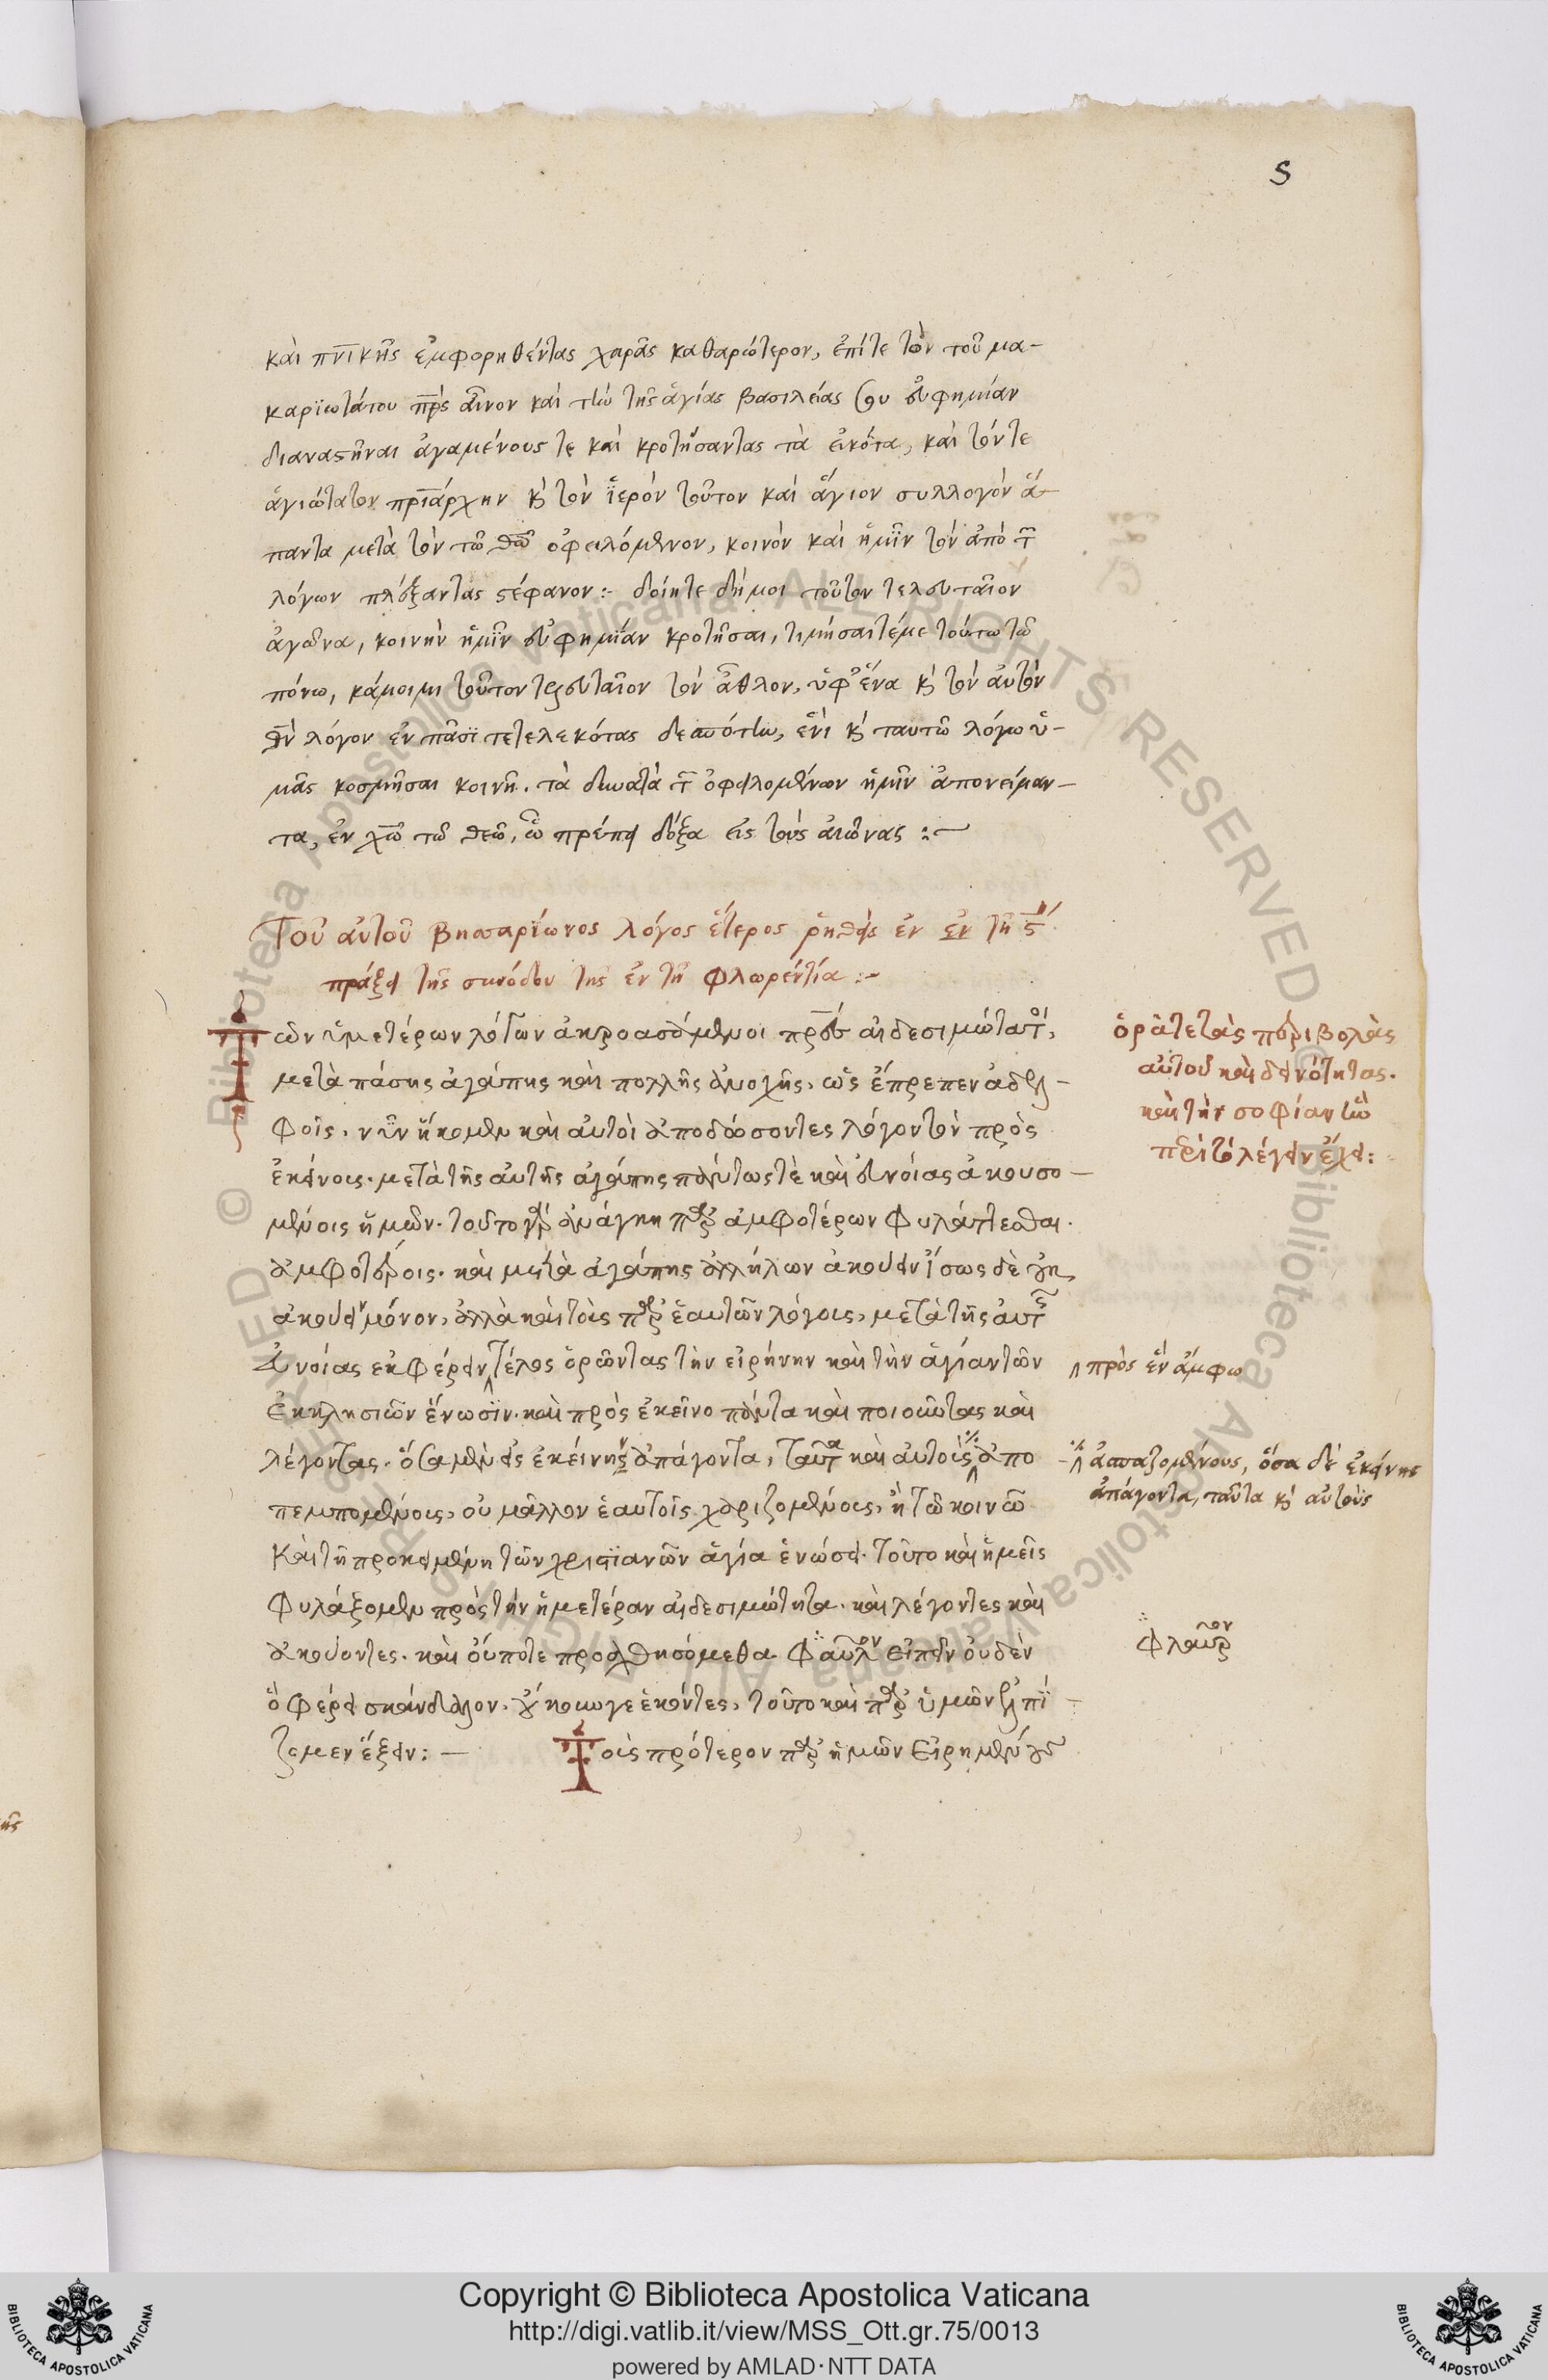 5
καὶ πν̅ικῆς ἐμφορηθέντας χαρᾶς καθαρώτερον, ἐπί τε τὸν τοῦ μα-
καριωτάτου πρ̅ς αἶνον καὶ τὴν τῆς ἁγίας βασιλείας σου εὐφημίαν
διαναστῆναι ἀγαμένους τε καὶ κροτήσαντας τὰ εἰκότα, καὶ τόν τε
ἁγιώτατον πριάρχην κ̀ τὸν ἱ̈ερὸν τοῦτον καὶ ἅγιον συλλογὸν ἅ-
παντα μετὰ τὸν τῶ θω̅ ὀφειλόμενον, κοινὸν καὶ ἡμῖν τὸν ἀπὸ τ῀
λόγων πλέξαντας στέφανον :- δοίητε δή μοι τοῦτον τελευταῖον
ἀγῶνα, κοινὴν ἡμῖν εὐφημίαν κροτῆσαι, τιμήσαιτέ με τούτω τῶ
πόνω, κάμοιμι τοῦτον τελευταῖον τὸν ἆθλον, ὑφ' ἕνα κ̀ τὸν αὐτὸν
θν̅ λόγον ἐν πᾶσϊ τετελεκότας δεσπότην, ἑνὶ κ̀ ταυτῶ λόγω ὑ-
μᾶς κοσμῆσαι κοινῆ. τὰ δυνατὰ τ῀ ὀφειλομένων ἡμῖν ἀπονείμαν-
τα, ἐν χω̅ τῶ θεῶ, ὧ πρέπει δόξα εἰς τοὺς αἰῶνας :-
Τοῦ αὐτοῦ βησσαρίωνος λόγος ἕτερος ῥηθεὶς ἐν ἐν τῆ
πράξει τῆς συνόδου τῆς ἐν τῆ φλωρεντία :-
Τῶν ὑμετέρων λόγων ἀκροασόμενοι πρ̅ες αἰδεσιμώτατοι,
μετὰ πάσης ἀγάπης καὶ πολλῆς ἀνοχῆς, ὡς ἔπρεπεν ἀδελ-
φοῖς, νῦν ἥκομεν καὶ αὐτοὶ ἀποδώσοντες λόγον τὸν πρὸς
ἐκείνοις. μετὰ τῆς αὐτῆς ἀγάπης πάντως τὲ καὶ εὐνοίας ἀκουσο-
μένοις ἡμῶν. τοῦτο γὰρ ἀνάγκη παρ' ἀμφοτέρων φυλάττεσθαι.
ἀμφοτέροις. καὶ μετὰ ἀγάπης ἀλλήλων ἀκούειν ἴσως δὲ
ἀκούειν μόνον, ἀλλὰ καὶ τοῖς παρ' ἑαυτῶν λόγοις, μετὰ τῆς αὐτῆς
εὐνοίας ἐκφέρειν τέλος ὁρῶντας τὴν εἰρήνην καὶ τὴν ἁγίαν τῶν
ἐκκλησιῶν ἕνωσϊν. καὶ πρὸς ἐκεῖνο πάντα καὶ ποιοῦντας καὶ
λέγοντας. ὅσα μὲν εἰς ἐκείνην ἀπάγοντα, ταῦτα καὶ αὐτοὶς ἀπο
πεμπομένοις, οὐ μᾶλλον ἑαυτοῖς χαριζομένοις, ἢ τῶ κοινῶ
καὶ τῆ προκειμένη τῶν χριστϊανῶν ἁγία ἑνώσει. τοῦτο καὶ ἡμεῖς
φυλάξομεν πρὸς τὴν ἡμετέραν αἰδεσιμώτητα. καὶ λέγοντες καὶ
ἀκούοντες. καὶ οὔποτε προαχθησόμεθα φαῦλον εἰπεῖν οὐδὲν
ὃ φέρει σκάνδαλον. οὔκουν γε ἑκόντες, τοῦτο καὶ παρ' ὑμῶν ἐλπί
ζομεν ἕξειν :- Τοῖς πρότερον παρ' ἡμῶν εἰρημένοις
ὁρᾶτε τὰς περιβολὰς
αὐτοῦ καὶ δεινότητας.
καὶ τὴν σοφίαν ἣν
περὶ τὸ λέγειν ἔχει :
πρὸς ἓν ἄμφω
ἀσπαζομένους, ὅσα δὲ ἐκείνης
ἀπάγοντα, ταῦτα κ̀ αὐτοὺς
φλαῦρον
Copyright © Biblioteca Apostolica Vaticana
http://digi.vatlib.it/view/MSS_Ott.gr.75/0013
powered by AMLAD·NTT DATA
BIBLIOTECA APOSTOLICA VATICANA
BIBLIOTECA APOSTOLICA VATICANA